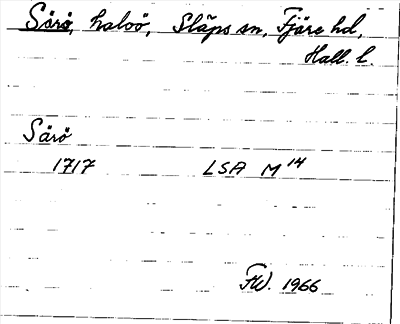 Särö, halvö, Släps sn, Fjäre hd,
Hall. l.
Särö
1717 LSA M14
FW. 1966